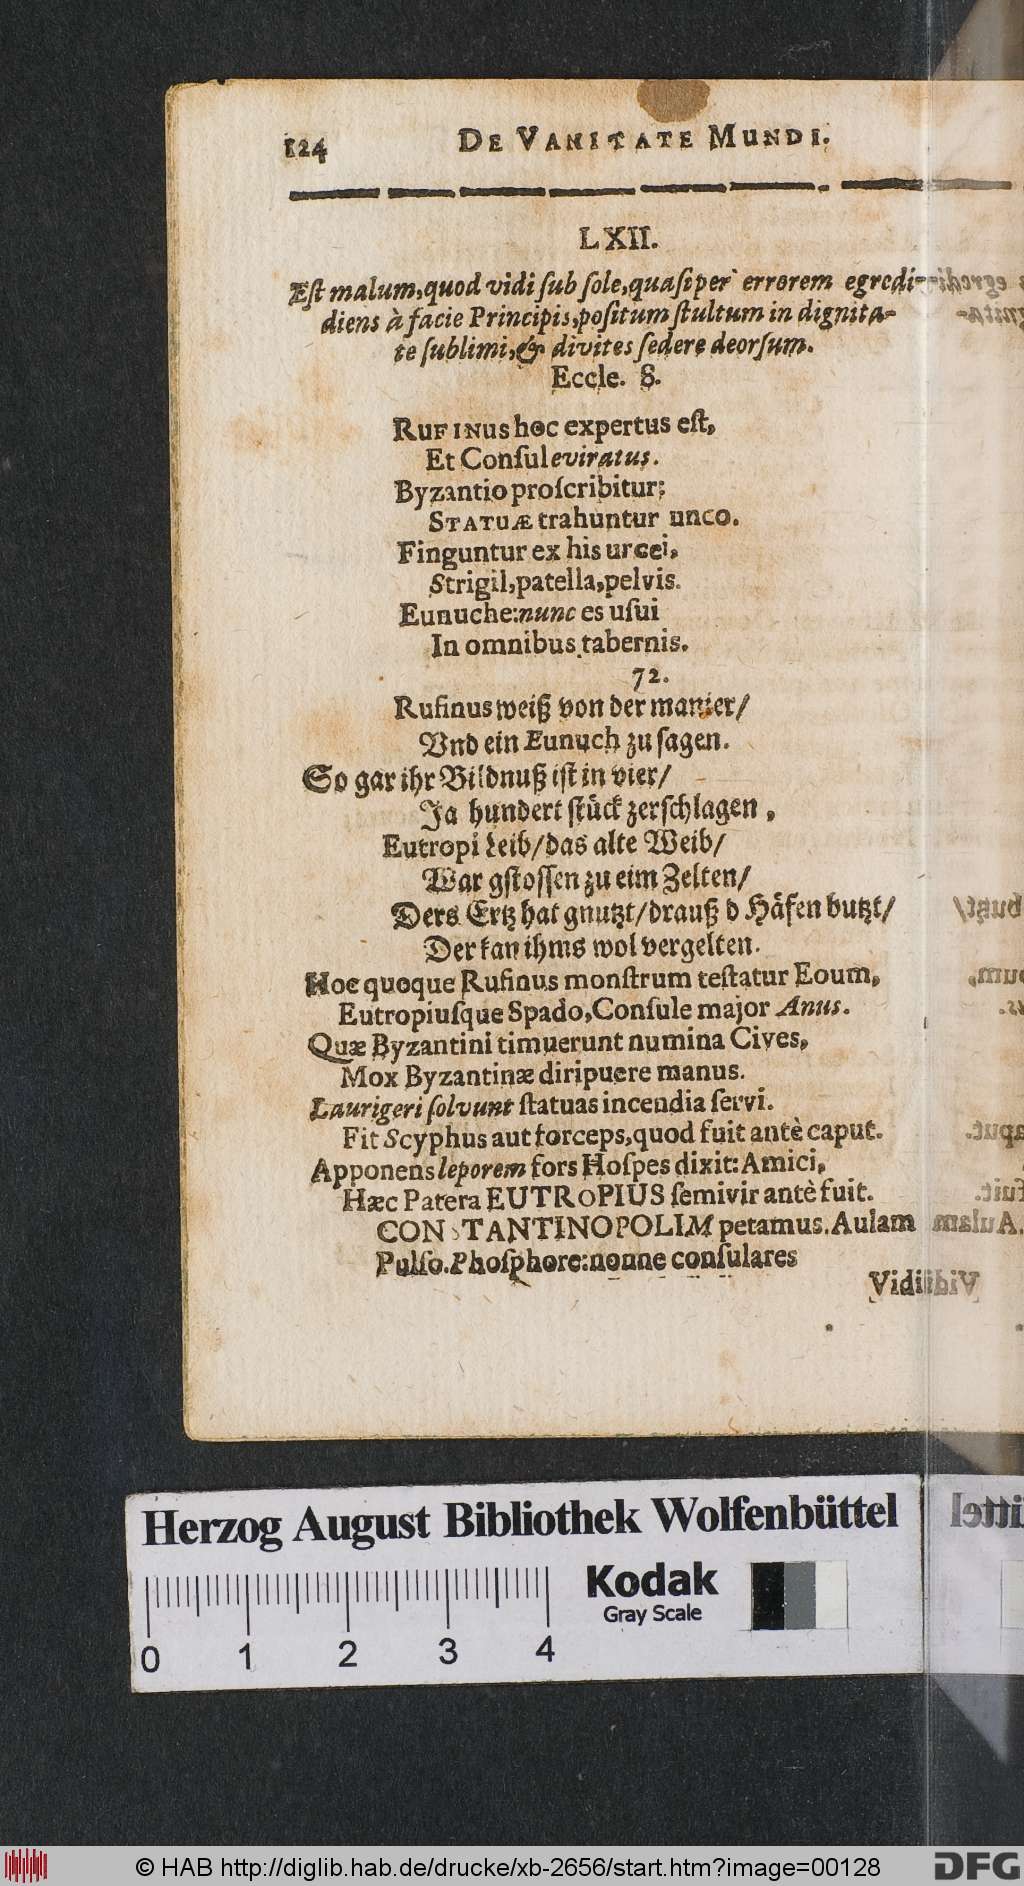 124 DE VANITATE MUNDI.
LXII.
Eſt malum, quod vidi ſub ſole, quaſi per errorem egredi-
diens à facie Principis, poſitum ſtultum in dignita-
te ſublimi, & divites ſedere deorſum.
Eccle. 8.
RUFINUS hoc expertus eſt,
Et Conſul eviratus.
Byzantio proſcribitur;
STATUÆ trahuntur unco.
Finguntur ex his urcei,
Strigil, patella, pelvis.
Eunuche: nunc es uſui
In omnibus tabernis.
72.
Rufinus weiß von der manier/
Vnd ein Eunuch zu ſagen.
So gar ihr Bildnuß iſt in vier/
Ja hundert ſtück zerſchlagen,
Eutropi Leib/ das alte Weib/
War gſtoſſen zu eim Zelten/
Ders Ertz hat gnutzt/ drauß d Häfen butzt/
Der kan ihms wol vergelten.
Hoc quoque Rufinus monſtrum teſtatur Eoum,
Eutropiuſque Spado, Conſule major Anus.
Quæ Byzantini timuerunt numina Cives,
Mox Byzantinæ diripuere manus.
Laurigeri ſolvunt ſtatuas incendia ſervi.
Fit Scyphus aut forceps, quod fuit antè caput.
Apponens leporem fors Hoſpes dixit: Amici,
Hæc Patera EUTROPIUS ſemivir antè fuit.
CONSTANTINOPOLIM petamus. Aulam
Pulſo. Phoſphore: nonne conſulares
Vidi
Herzog August Bibliothek Wolfenbüttel
Kodak
Gray Scale
0 1 2 3 4
© HAB http://diglib.hab.de/drucke/xb-2656/start.htm?image=00128
DFG